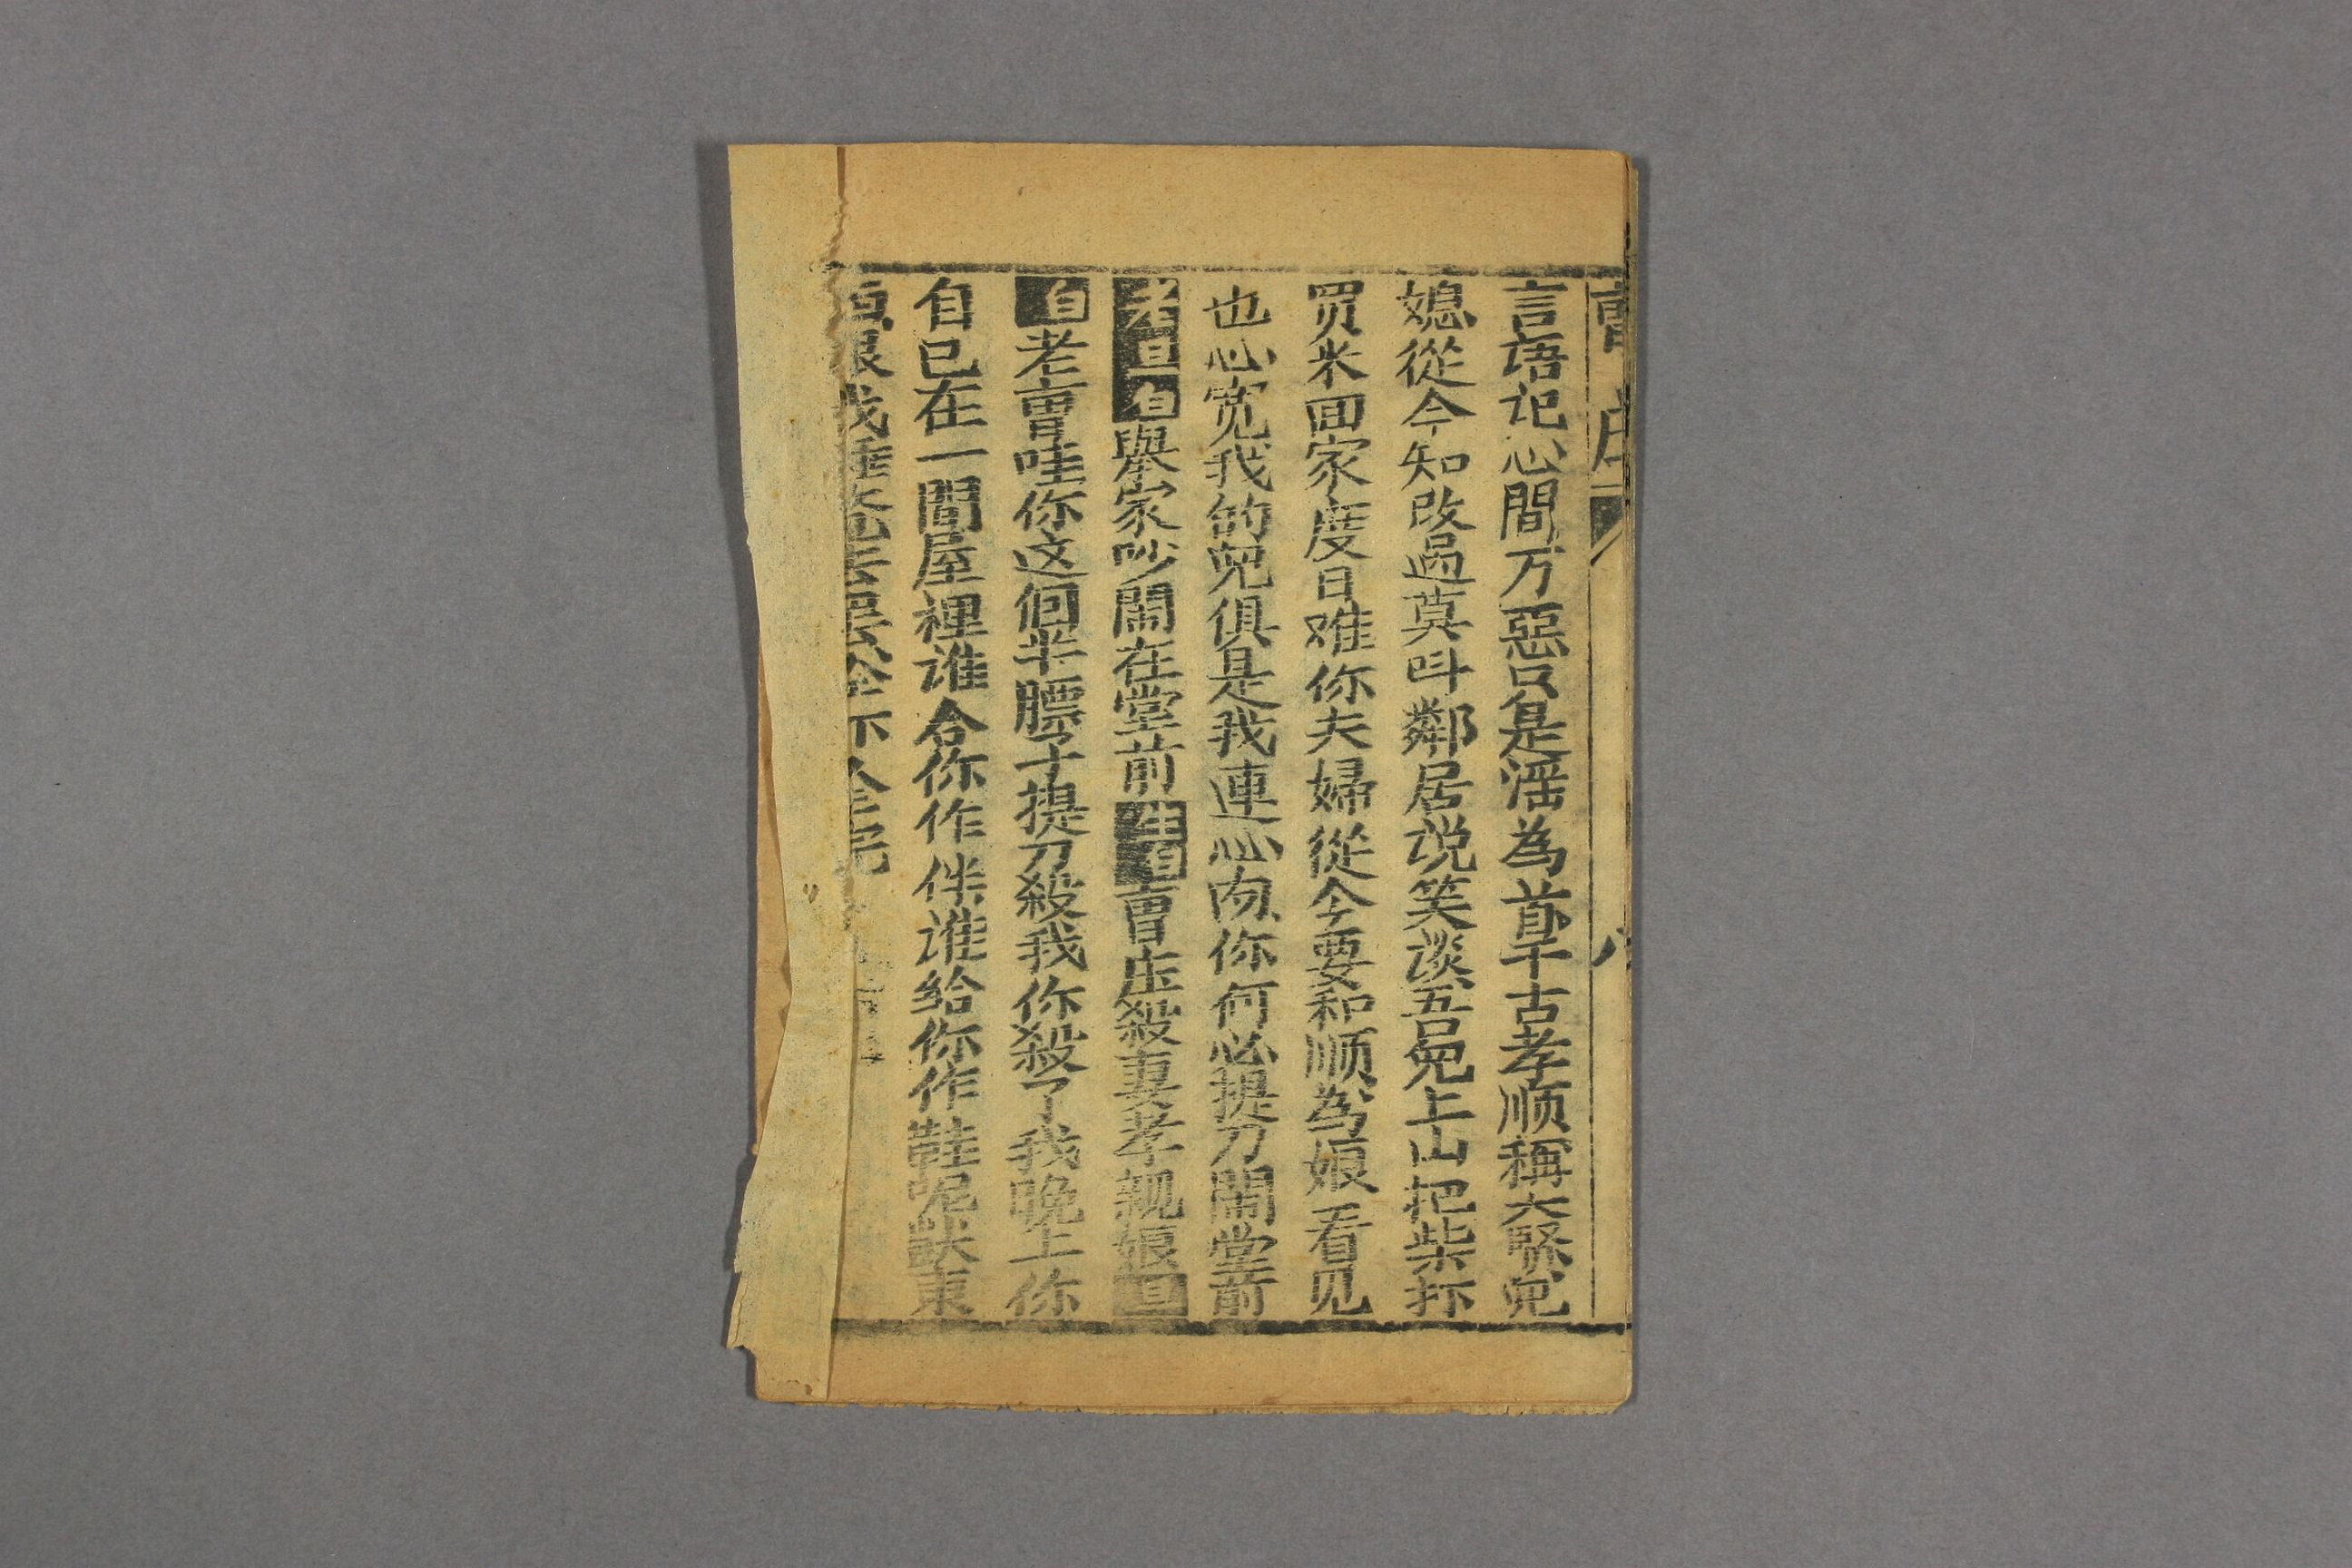 言语记心間万惡只是滛為首千古孝顺稱大賢兒
媳從今知改過莫叫鄰居说笑谈吾兒上山把柴打
买米回家度日难你夫婦從今要和顺為娘看见
也心宽我的兒俱是我連心肉你何必提刀鬧堂前
老旦白舉家吵鬧在堂前生白曺庄殺妻孝親娘旦
白老曺哇你这個半膘子提刀殺我你殺了我晚上你
自己在一間屋裡谁合你作伴谁给你作鞋呢獃東